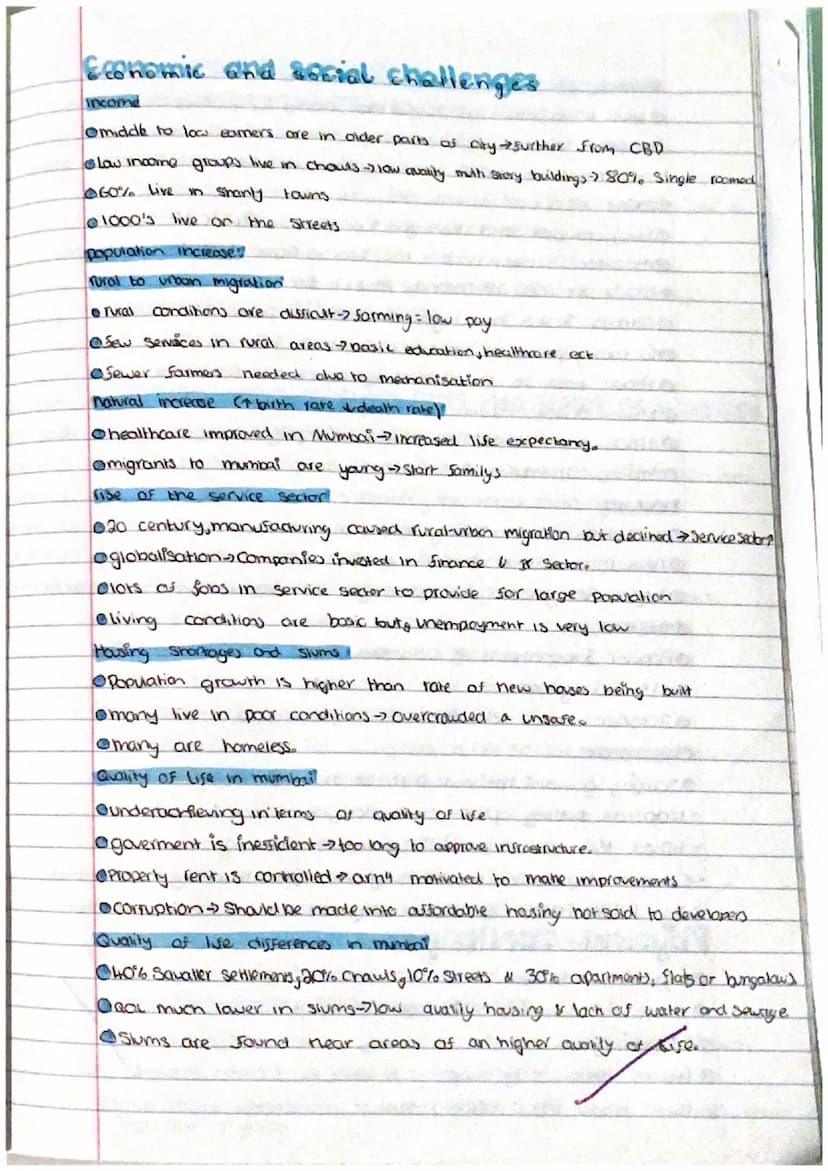 Economic and social challenges
income
middle to low earners are in older parts of city → further from CBD
low income groups live in chawls → low quality multi story buildings → 80% single roomed
60% live in shanty towns
1000's live on the streets
population increase:
rural to urban migration
rural conditions are difficult → farming = low pay
few services in rural areas → basic education, healthcare ect
fewer farmers needed due to mechanisation
natural increase (↑ birth rate ↓ death rate)
healthcare improved in Mumbai → increased life expectancy.
migrants to mumbai are young → start familys
rise of the service sector
20 century, manufacturing caused rural-urban migration but declined → service sector↑
globalisation → companies invested in finance & IT sector.
lots of jobs in service sector to provide for large population
living conditions are basic but, unempoyment is very low
Housing shortages and slums
Population growth is higher than rate of new houses being built
many live in poor conditions → overcrowded & unsafe.
many are homeless.
Quality of life in mumbai
underachieving in terms of quality of life
goverment is inefficient → too long to approve infrastructure.
Property rent is controlled → motivated to make improvements
corruption → should be made into affordable housing not sold to developers
Quality of life differences in mumbai
40% Squatter settlements, 20% chawls, 10% streets & 30% apartments, flats or bungalows
QOL much lower in slums → low quality housing & lack of water and sewage
Slums are found near areas of an higher quality of life.